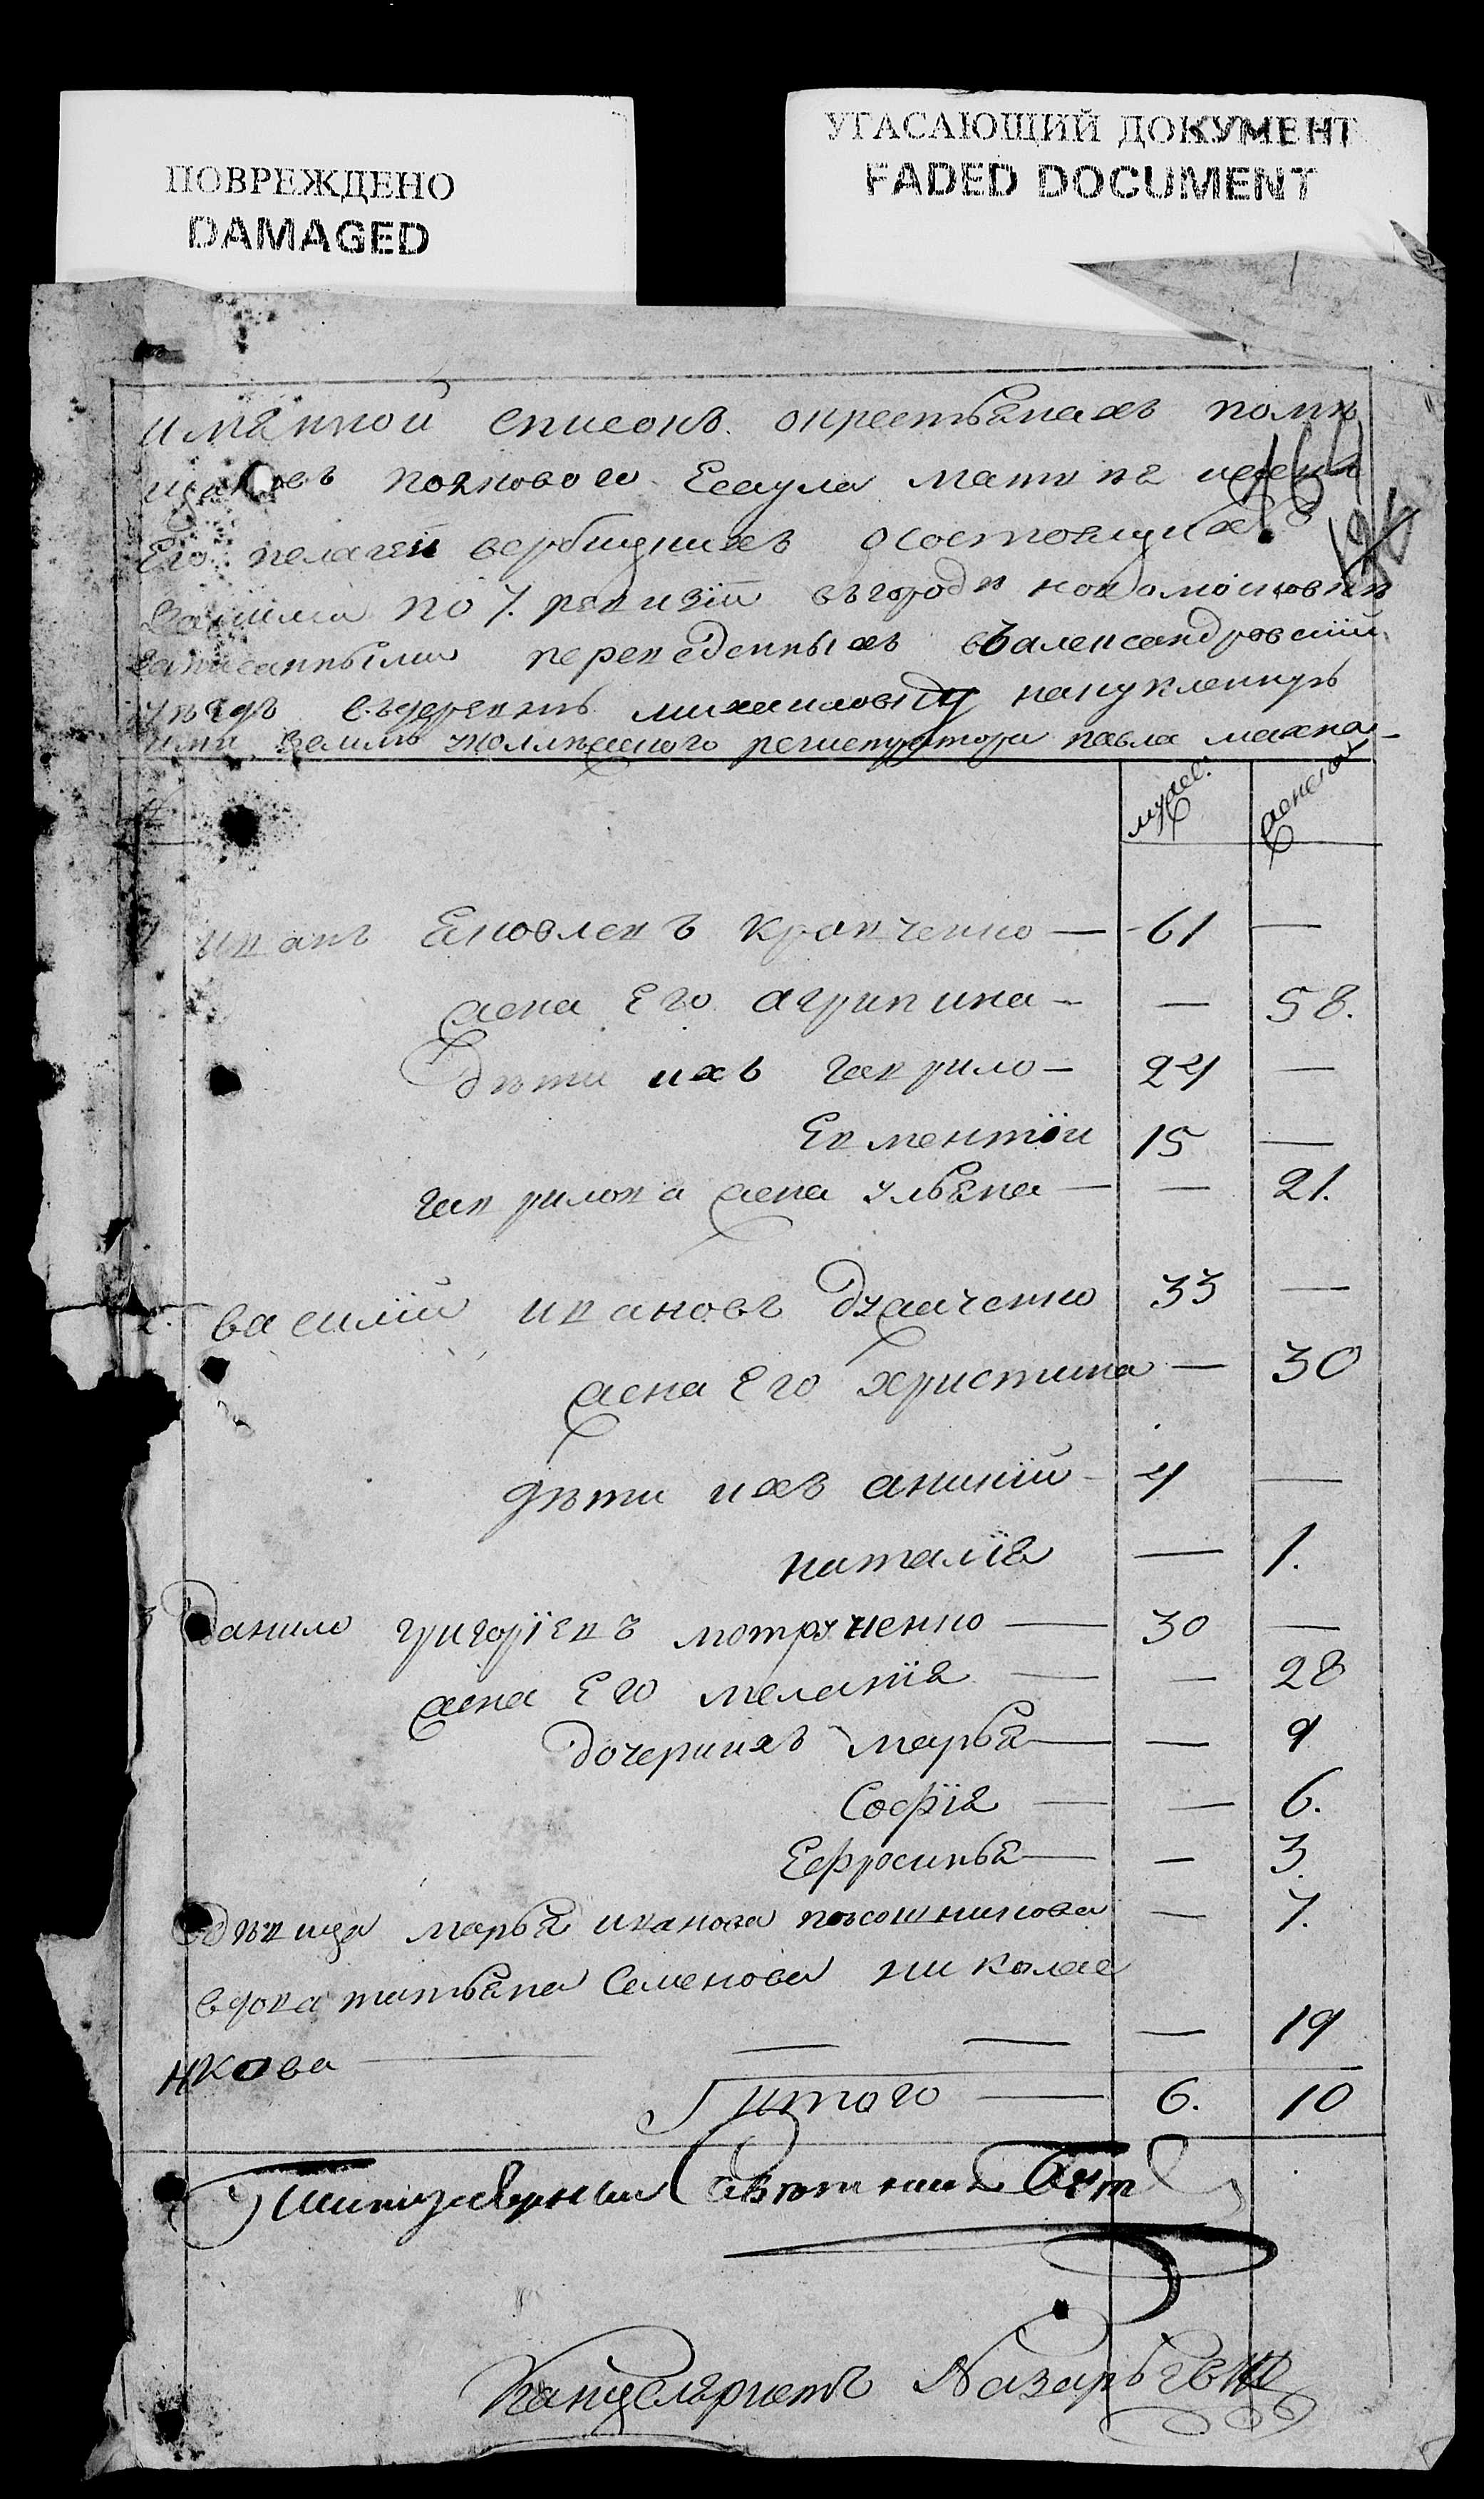 ПОВРЕЖДЕНО
DAMAGED
УГАСАЮЩИЙ ДОКУМЕНТ
FADED DOCUMENT
имянной списокъ окрестьянахъ помѣ
щиковъ полкового Есаула
Его пелагеи вербицкихъ осостоящихъ
по 7. ревизіи въгородѣ новомосковскѣ
записанными переведенныхъ въалександровскій
уѣздъ въдеревню михаиловку накупленнуъ
ими землю уколлѣжского регистратора павла махна-
муже:
женска
иванъ Яковлевъ кравченко — 61 —
жена Его агрипина — — 58.
дѣти ихъ гаврило — 24 —
Евментій 15 —
гаврилова жена ульяна — — 21.
2. василій ивановъ дудченко 33 —
жена Его христина — 30
дѣти ихъ аникій — 4 —
наталія — 1.
3 данило григоріевъ мотрученко — 30 —
жена Его меланія — — 28
дочериихъ марья — — 9
Софія — — 6.
Ефросинья — — 3.
дѣвица марья иванова посошникова — 7.
вдова татьяна Семенова николае
нкова — — — — 19
итого — 6. 10
Титулярный Совѣтникъ
Канцеляристъ Назарьевъ